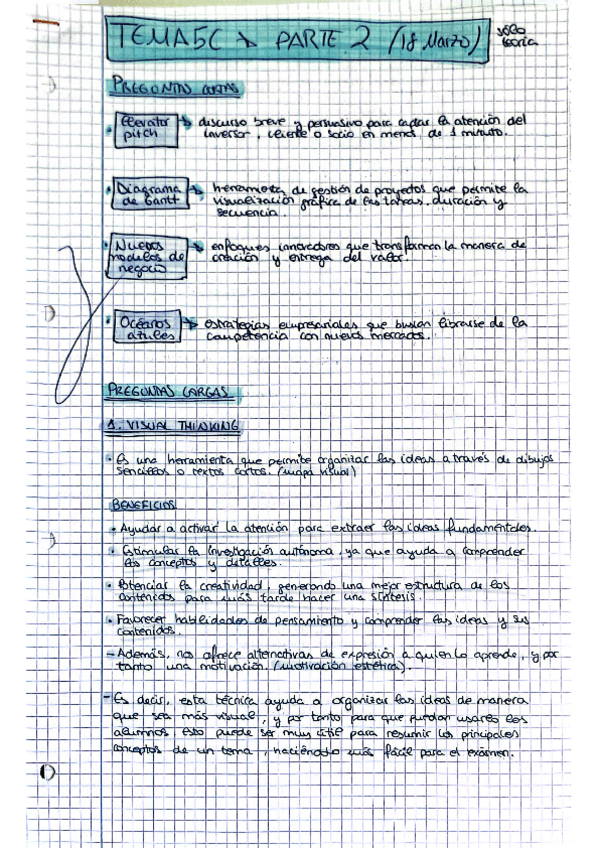 TEMA 5C → PARTE 2 (18 Marzo) sólo teoría
PREGUNTAS CORTAS
• Elevator pitch → discurso breve y persuasivo para captar la atención del
inversor, cliente o socio en menos de 1 minuto.
• Diagrama de Gantt → herramienta de gestión de proyectos que permite la
visualización gráfica de las tareas, duración y
secuencia.
• Nuevos modelos de negocio → enfoques innovadores que transforman la manera de
creación y entrega del valor.
• Océanos azules → estrategias empresariales que buscan librarse de la
competencia con nuevos mercados.
PREGUNTAS LARGAS
1. VISUAL THINKING
• Es una herramienta que permite organizar las ideas a través de dibujos
sencillos o textos cortos. (mapa visual)
BENEFICIOS
• Ayudar a activar la atención para extraer las ideas fundamentales.
• Estimular la investigación autónoma, ya que ayuda a comprender
los conceptos y detalles.
• Potenciar la creatividad, generando una mejor estructura de los
contenidos para más tarde hacer una síntesis.
• Favorecer habilidades de pensamiento y comprender las ideas y sus
contenidos.
- Además, nos ofrece alternativas de expresión a quien lo aprende, y por
tanto una motivación. (motivación estética).
- Es decir, esta técnica ayuda a organizar las ideas de manera
que sea más visual, y por tanto para que puedan usarlo los
alumnos. Esto puede ser muy útil para resumir los principales
conceptos de un tema, haciéndolo más fácil para el exámen.